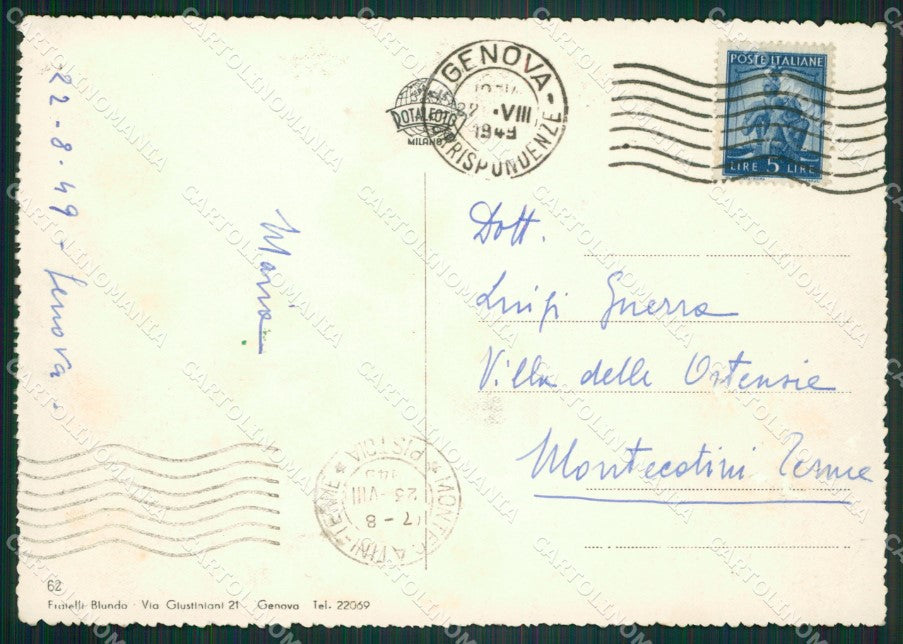 22-8-49 - Genova -
Maria
GENOVA
22 ·VIII
1949
CORRISPONDENZE
DOTALFOTO
MILANO
POSTE ITALIANE
LIRE 5 LIRE
Dott.
Luigi Guerra
Villa delle Ortensie
Montecatini Terme
MONTECATINI-TERME ★ PISTOIA ★
17-8
23·VIII
62
Fratelli Blundo - Via Giustiniani 21 Genova Tel. 22069
CARTOLINOMANIA